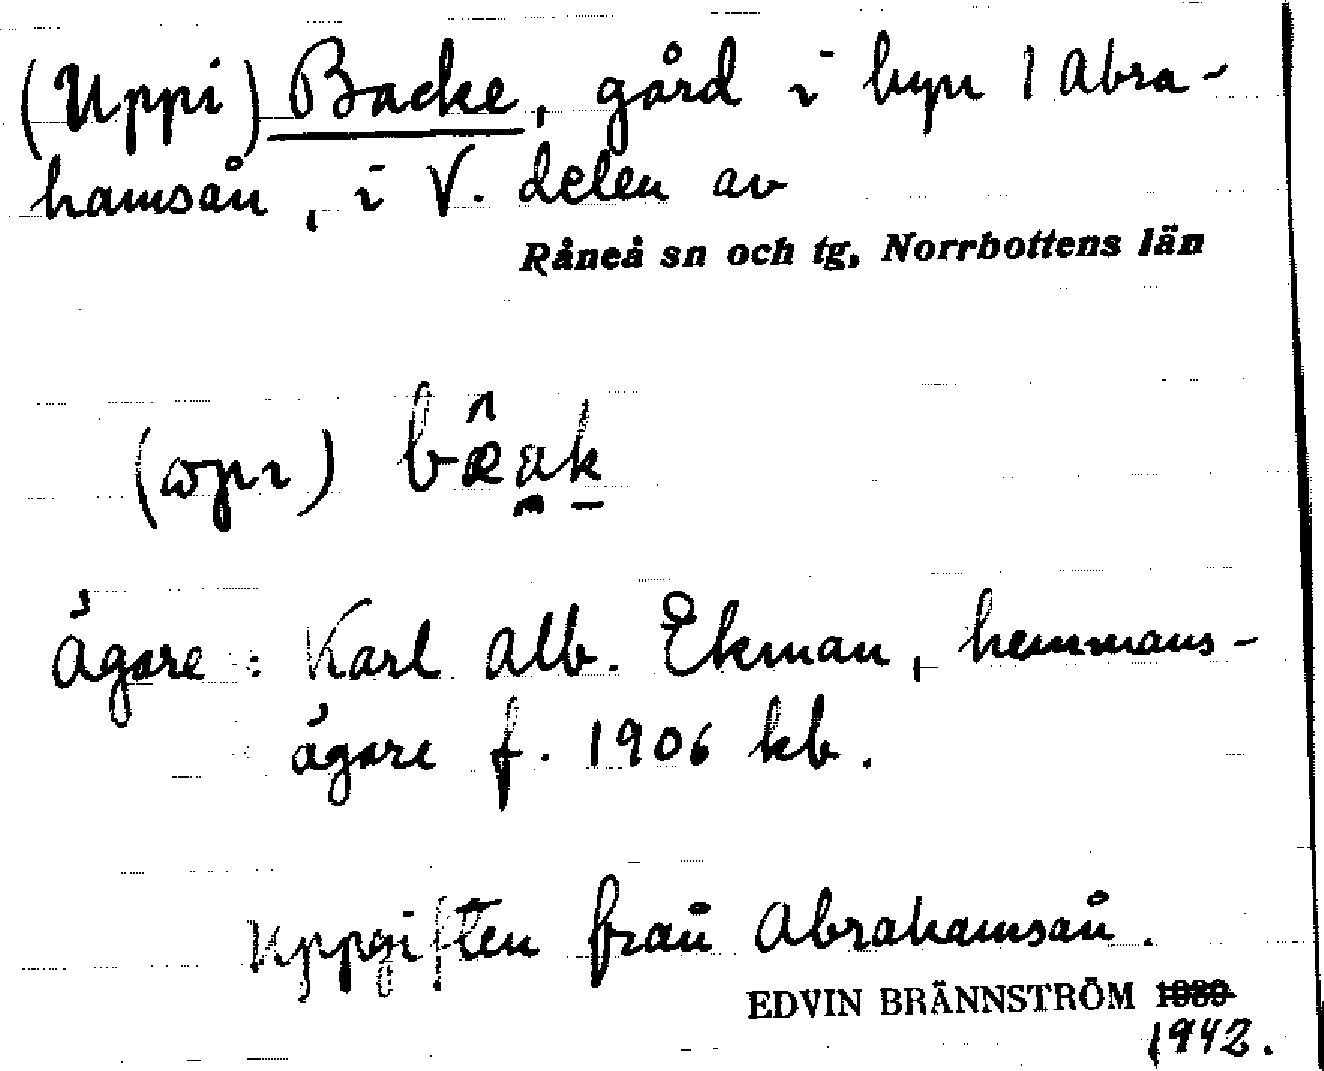 (Uppi) Backe, gård i byn 1 Abra-
hamsån, i V. delen av
Råneå sn och tg, Norrbottens län
(ɷpɩ) bæ̂a̯k̠
Ägare : Karl Alb. Ekman, hemmans-
ägare f. 1906 kb.
Uppgiften från Abrahamsån.
EDVIN BRÄNNSTRÖM
1942.